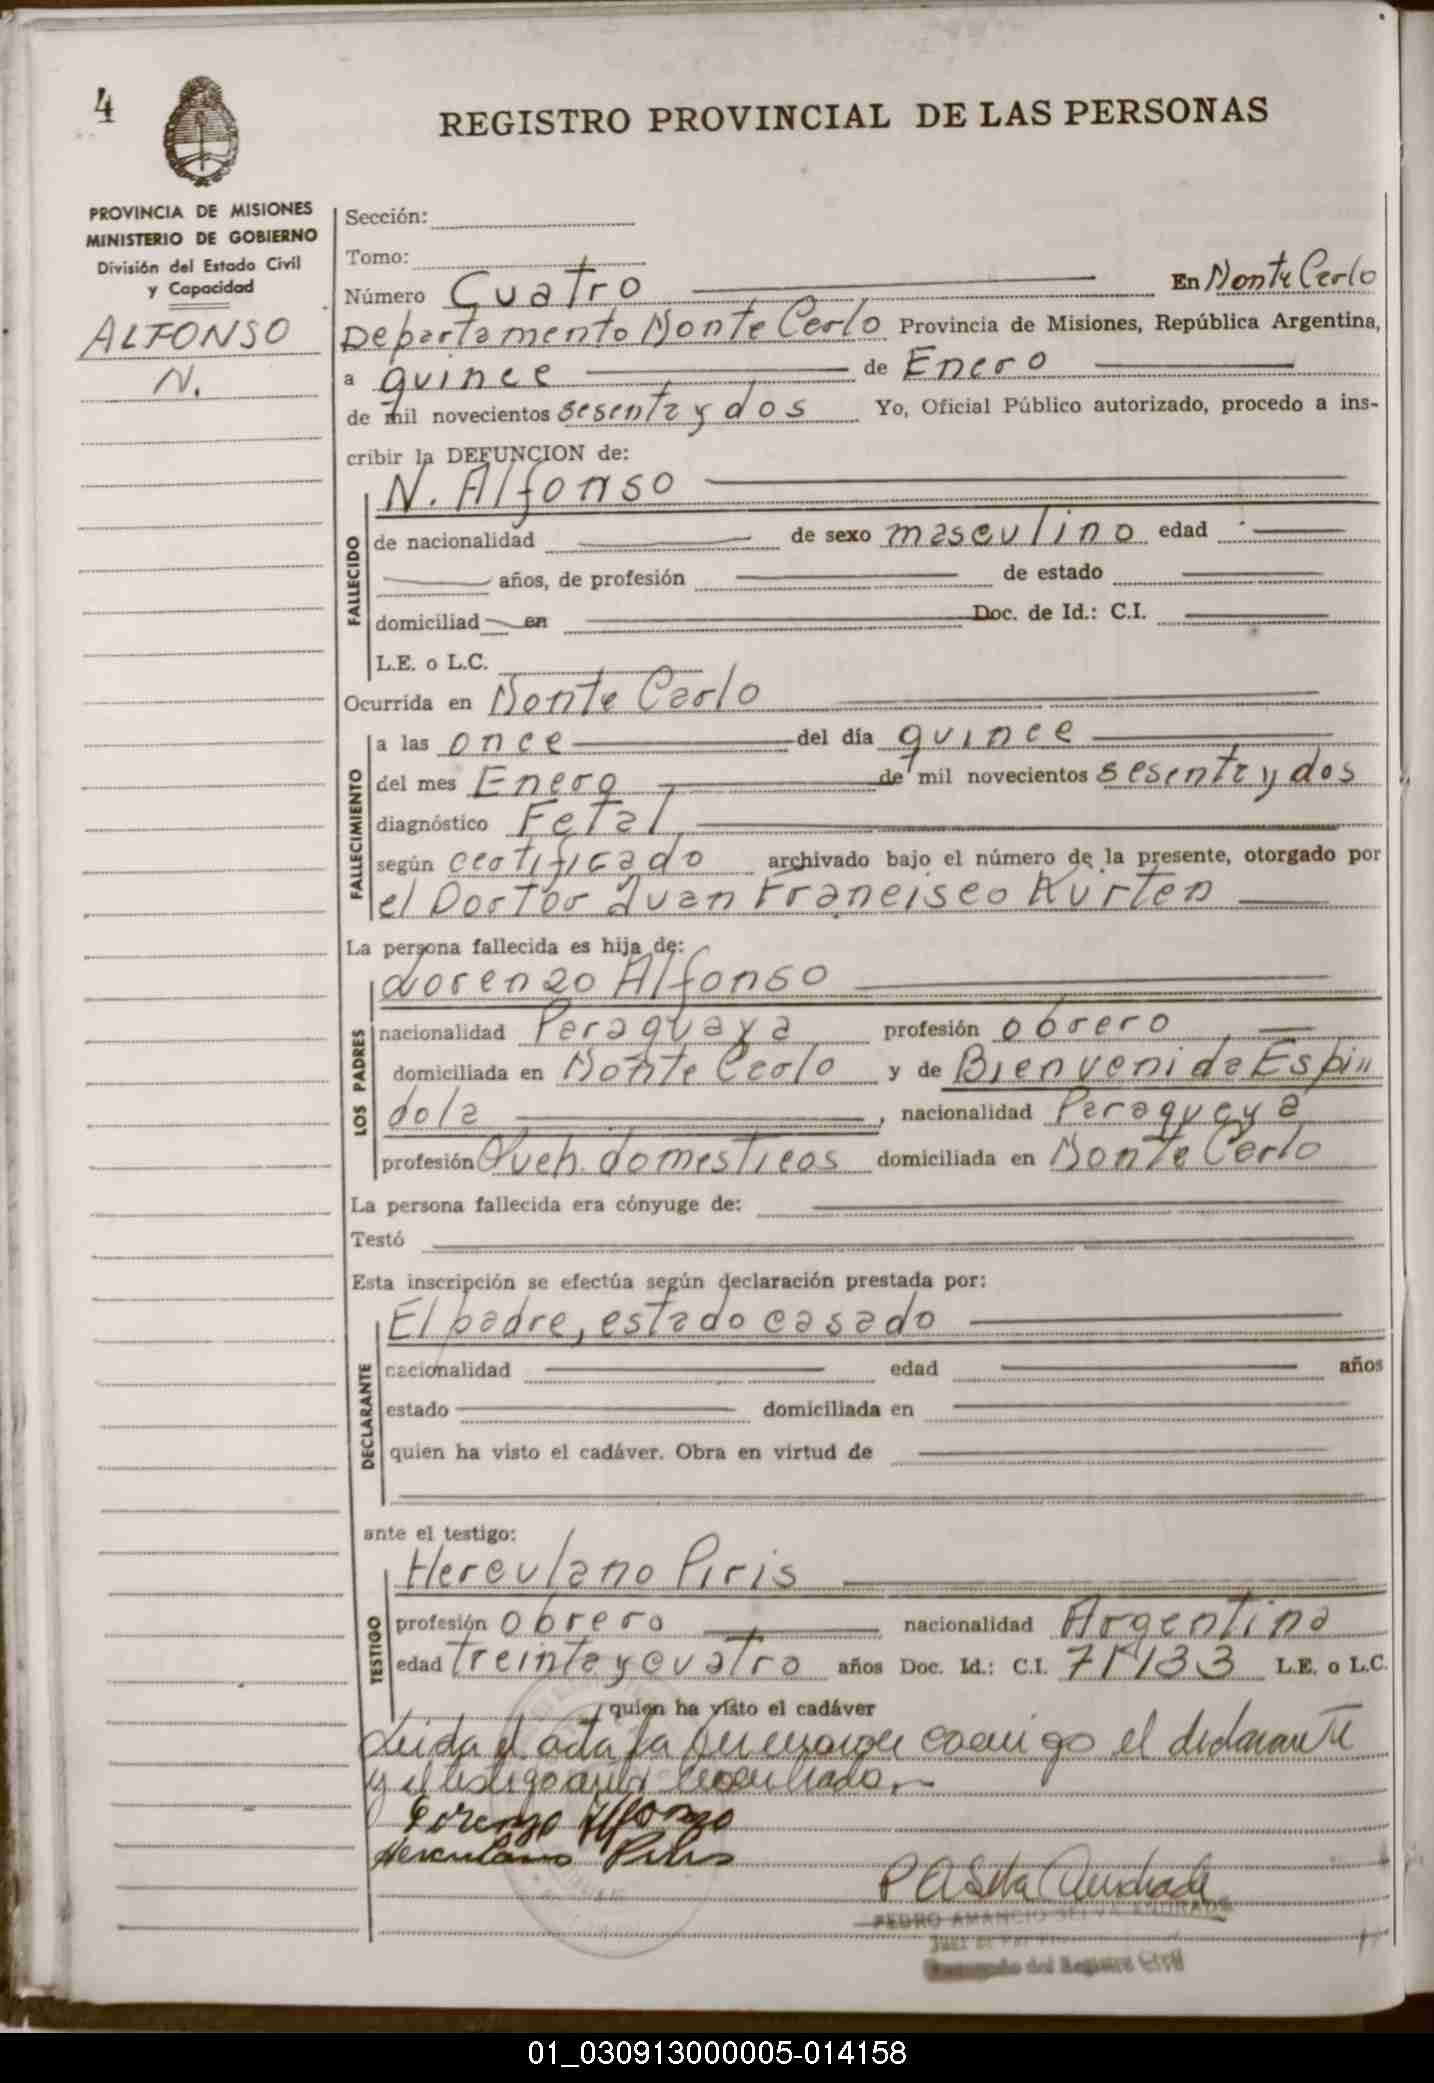 4
REGISTRO PROVINCIAL DE LAS PERSONAS
PROVINCIA DE MISIONES
MINISTERIO DE GOBIERNO
División del Estado Civil
y Capacidad
ALFONSO
N.
Sección:
Tomo:
Número Cuatro En Monte Carlo
Departamento Monte Carlo Provincia de Misiones, República Argentina,
a quince de Enero
de mil novecientos sesenta y dos Yo, Oficial Público autorizado, procedo a ins-
cribir la DEFUNCION de:
N. Alfonso
FALLECIDO
de nacionalidad de sexo masculino edad
años, de profesión de estado
domiciliad en Doc. de Id.: C.I.
L.E. o L.C.
Ocurrida en Monte Carlo
FALLECIMIENTO
a las once del día quince
del mes Enero de mil novecientos sesenta y dos
diagnóstico Fetal
según certificado archivado bajo el número de la presente, otorgado por
el Doctor Juan Francisco Kurten
La persona fallecida es hija de:
LOS PADRES
Lorenzo Alfonso
nacionalidad Paraguaya profesión obrero
domiciliada en Monte Carlo y de Bienvenida Espin
dola, nacionalidad Paraguaya
profesión Queh. domesticos domiciliada en Monte Carlo
La persona fallecida era cónyuge de:
Testó
Esta inscripción se efectúa según declaración prestada por:
DECLARANTE
El padre, estado casado
nacionalidad edad años
estado domiciliada en
quien ha visto el cadáver. Obra en virtud de
ante el testigo:
TESTIGO
Herculano Piris
profesión obrero nacionalidad Argentina
edad treinta y cuatro años Doc. Id.: C.I. L.E. o L.C.
quien ha visto el cadáver
Leida el acta la conmigo el declarante
y el testigo
Lorenzo Alfonzo
Herculano Piris
PASelva Andrade
PEDRO AMANCIO SELVA ANDRADE
Juez de Paz
Encargado del Registro Civil
01_030913000005-014158